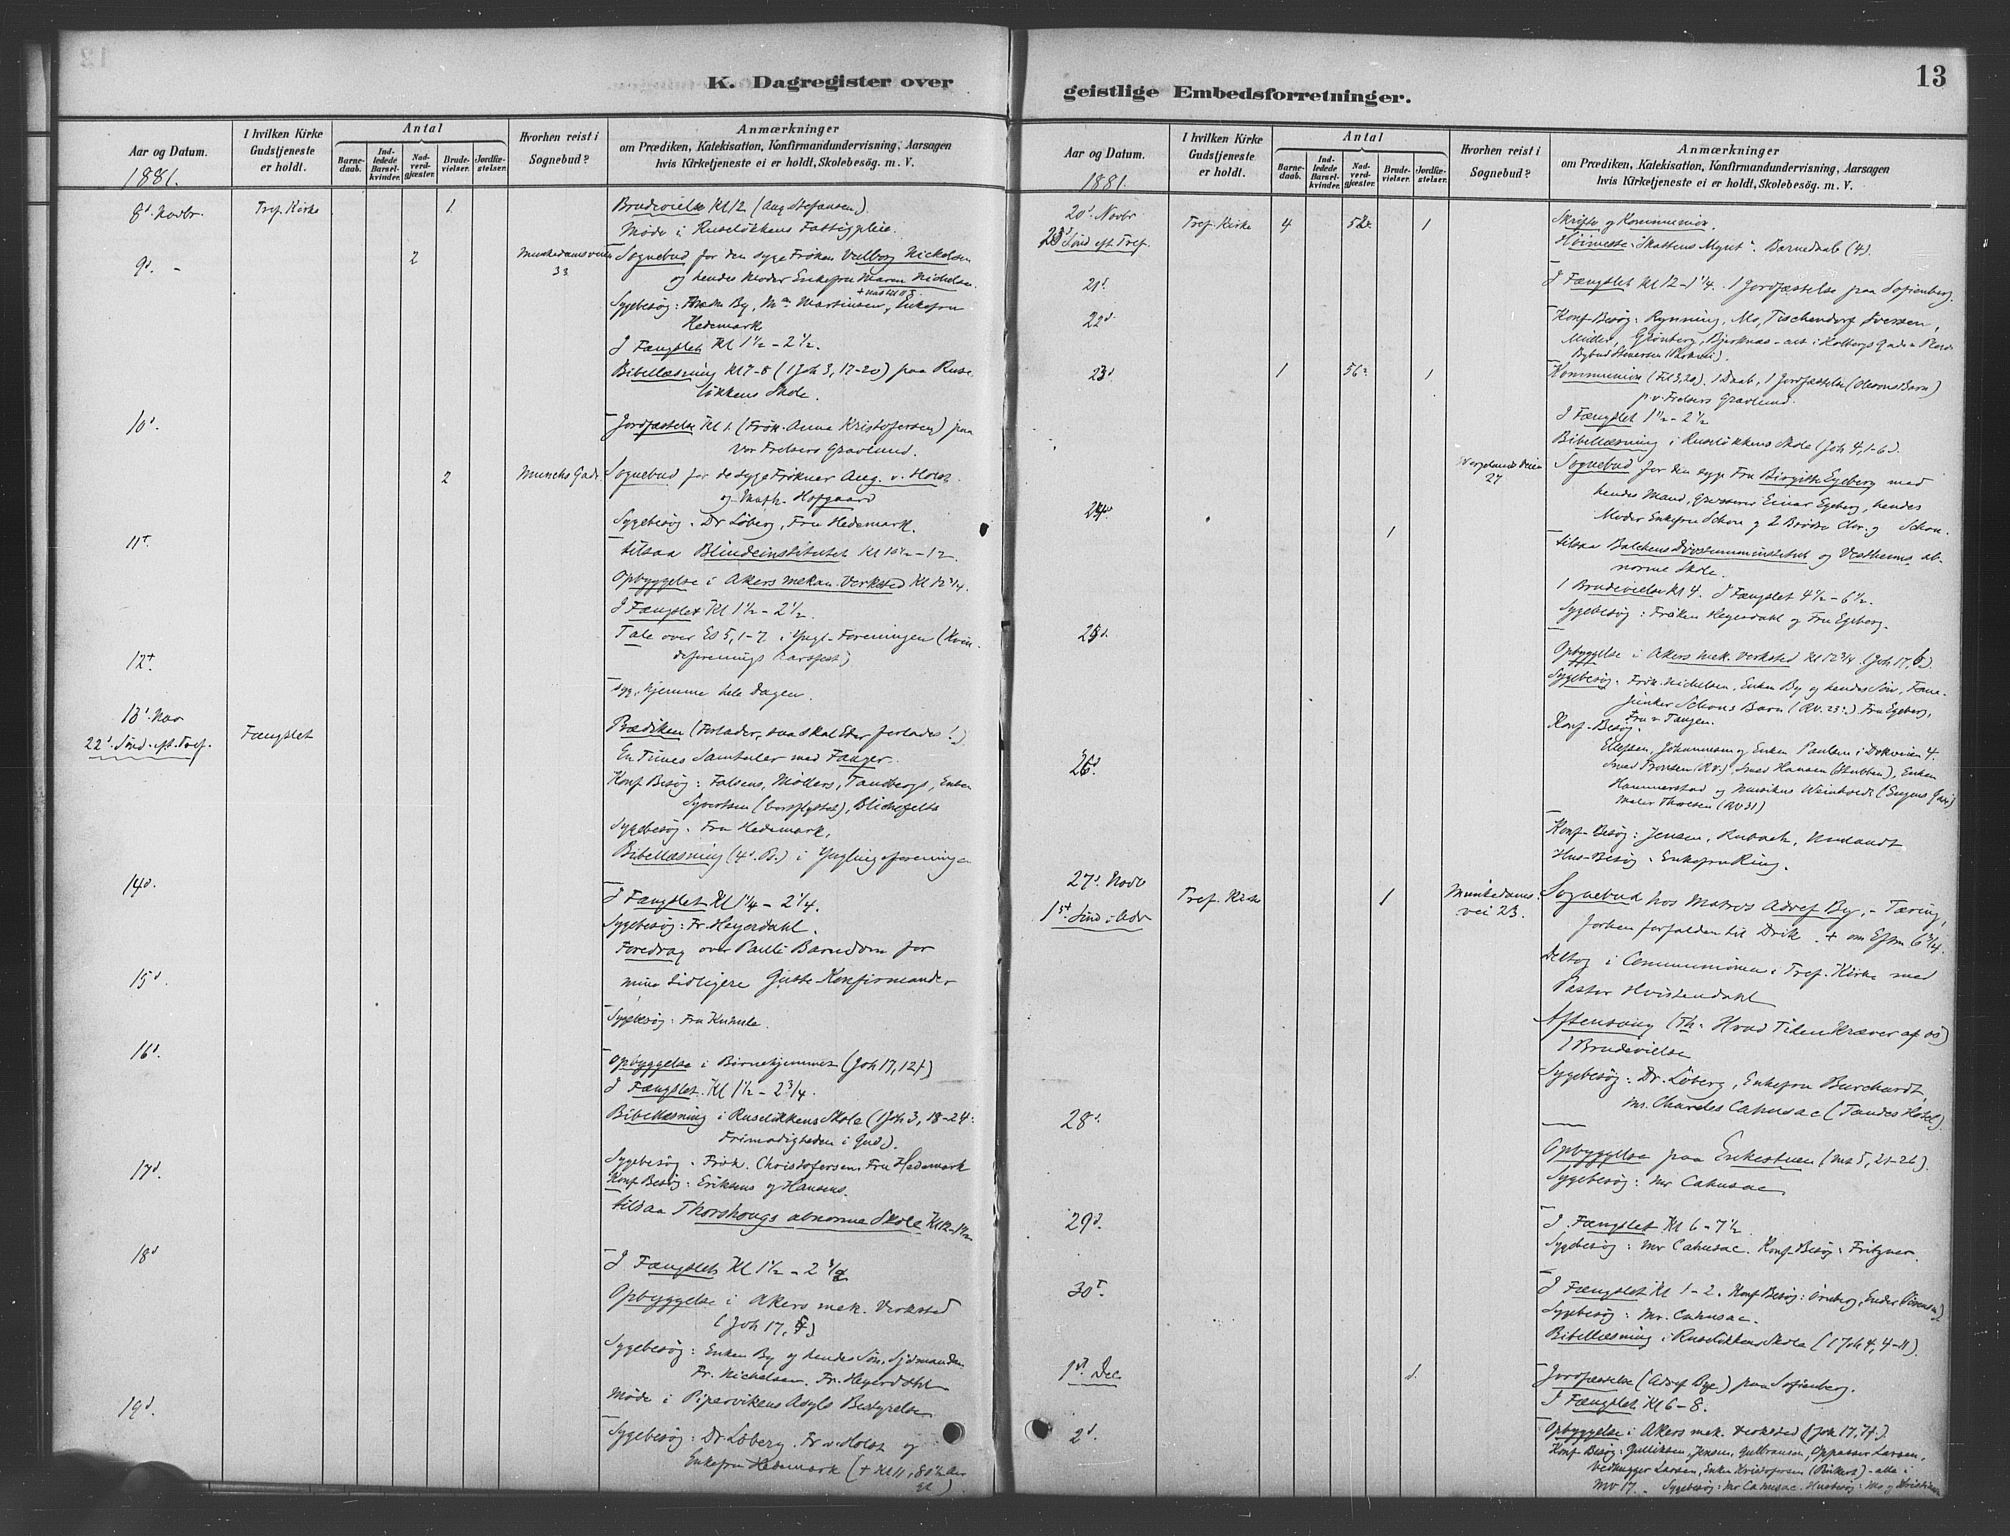 K. Dagregister over
Aar og Datum.
I hvilken Kirke
Gudstjeneste
er holdt.
Antal
Barne-
daab.
Ind-
ledede
Barsel-
kvinder.
Nad-
verd-
gjæster.
Brude-
vielser.
Jordfæ-
stelser.
Hvorhen reist i
Sognebud?
Anmærkninger
om Prædiken, Katekisation, Konfirmandundervisning, Aarsagen
hvis Kirketjeneste ei er holdt, Skolebesög. m. V.
1881.
8d. Novbr. Tref. Kirke 1. Brudevielse Kl 12 (Aug Stefansen).
Møde i Ruseløkkens Fattigpleie.
9d. - 2 Munkedamsveien 33 Sognebud for den syge Frøken Valborg Nickelsen
og hendes Moder Enkefru Maren Nickelsen
Sygebesøg: By, Martinsen, Enkefru
Hedemark
I Fængslet Kl 1½ - 2½.
Bibellæsning Kl 7-8 (1 Joh 3, 17-20) paa Ruse-
løkkens Skole.
10d. Jordfæstelse Kl 1. (Frøk. Anna Kristofersen) paa
Vor Frelsers Gravlund.
2 Munchs Gade Sognebud for de syge Frøkner Aug. v. Holst
og Math. Hofgaard
Sygebesøg. Dr Løberg, Fru Hedemark.
11t. tilsaa Blindeinstitutet Kl 10½ - 12.
Opbyggelse i Akers mekan. Verksted Kl 12 3/4.
I Fængslet Kl 1½ - 2½
Tale over Es 5, 1-7 i Yngl-Foreningen (Kvin-
deforenings Aarsfest)
12t. syg, hjemme hele Dagen.
13d. Nov
22d. Sønd. eft. Tref. Fængslet Prædiken (Forlader, saa skal Eder forlades!)
En Times Samtaler med Fanger.
Konf Besøg: Falsens, Møllers, Tandbergs, Enken
Syvertsen (bortflyttet), Blichefelts
Sygebesøg. Fru Hedemark,
Bibellæsning (4d. B.) i Ynglingeforeningen
14d. I Fængslet Kl 1¼ - 2¼.
Sygebesøg: Fr. Heyerdahl.
Foredrag over Pauli Barndom for
mine tidligere Gutte-Konfirmander
15d. Sygebesøg: Fru
16d. Opbyggelse i Børnehjemmet (Joh 17, 12f)
I Fængslet. Kl 1½ - 2 3/4.
Bibellæsning i Ruseløkkens Skole (1 Joh 3, 18-24:
Frimodigheden i Gud).
17d. Sygebesøg. Frøk. Christofersen, Fru Hedemark
Konf Besøg: Eriksens og Hansens.
tilsaa Thorshougs abnorme Skole Kl 12-1½
18d I Fængslet Kl 1½ - 2
Opbyggelse i Akers mek. Verksted
(Joh 17,
Sygebesøg: Enken By og hendes Søn, Sjømanden
Fr. Nickelsen. Fr. Heyerdahl.
Møde i Pipervikens Asyls Bestyrelse
19d. Sygebesøg: Dr. Løberg. Fr. v. Holst og
Enkefru Hedemark (+ Kl 11, 80½ Aar
gl).
geistlige Embedsforretninger.
13
Aar og Datum.
I hvilken Kirke
Gudstjeneste
er holdt.
Antal
Barne-
daab.
Ind-
ledede
Barsel-
kvinder.
Nad-
verd-
gjæster.
Brude-
vielser.
Jordfæ-
stelser.
Hvorhen reist i
Sognebud?
Anmærkninger
om Prædiken, Katekisation, Konfirmandundervisning, Aarsagen
hvis Kirketjeneste ei er holdt, Skolebesög. m. V.
1881.
20d. Novbr
23d Sønd eft. Tref. Tref. Kirke 4 52. 1 Skrifte og Kommunion.
Høimesse "Skattens Mynt". Barnedaab (4).
21d. I Fængslet Kl 12 - 1¼. 1 Jordfæstelse paa Sofienberg.
22d Konf-Besøg: Rynning, Mo, Tischendorf Iversen,
Müller, Grønberg, Bjerknæs - alt i Holbergs Gade.
23d 1 56 1 Kommunion (Fil 3, 20). 1 Daab, 1 Jordfæstelse (Olsens Barn)
p. v. Frelsers Gravlund.
I Fængslet 1½ - 2½
Bibellæsning i Ruseløkkens Skole (Joh 4, 1-6).
Wergelands Veien 27 Sognebud for den syge Fru Birgitte Egeberg med
hendes Mand, Grosserer Einar Egeberg, hendes
Moder Enkefru Schou og 2 Brødre Chr. og Schou.
24d 1 tilsaa Balchens Døvstummeinstitut og Vestheims ab-
norme Skole.
1 Brudevielse Kl 4. I Fængslet 4½ - 6½.
Sygebesøg: Frøken Heyerdahl og Fru Egeberg.
25d. Opbyggelse i Akers mek. Verksted Kl 12 3/4. (Joh 17, 6).
Sygebesøg. Frøk. Nickelsen, Enken By og hendes Søn, Fane-
junker Schous Barn (RV. 23). Fru Egeberg,
Fru v. Tangen.
Konf-Besøg.
Ellefsen, Johannesen og Enken Paulsen i Dokveien 4.
Smed Torstsen (RV.), Smed Hansen (Stubben), Enken
Hammerstad og Musikus Weinholdt (Eugens Gade)
Maler Thoresen (RV 31)
26d. Konf-Besøg: Jensen, Rubach, Umlandt
Hus-Besøg. Enkefru Ring.
27d. Novbr
1st Sønd i Adv Tref. Kirke 1 Munkedams-
vei 23. Sognebud hos Matros Adolf By, - Tæring,
forhen forfalden til Drik. + om Eftm 6 3/4.
Deltog i Communionen i Tref. Kirke med
Pastor Hvistendahl
Aftensang (Th: Hvad Tiden kræver af os)
1 Brudevielse
Sygebesøg: Dr. Løberg, Enkefru Burchardt,
Mr. Charles Cahusac (Tandes Hotel).
28d. Opbyggelse paa Enkestuen (Ms 5, 21-26).
Sygebesøg: Mr Cahusac
29d. I Fængslet Kl 6 - 7½
Sygebesøg: Mr Cahusac. Konf Besøg: Fritzner.
30t. I Fængslet Kl 1 - 2. Konf Besøg:
Sygebesøg: Mr. Cahusac.
Bibellæsning i Ruseløkkens Skole (1 Joh 4, 4-11).
1st Dec 1. Jordfæstelse (Adolf Bye) paa Sofienberg.
I Fængslet Kl 6 - 8.
2d. Opbyggelse i Akers mek. Verksted (Joh 17, 7f).
Konf Besøg: Gulliksen, Jensen, Gulbransen, Oppasser Larsen,
Vedhugger Larsen, Enken Kristofersen - alle i
MV 17. Sygebesøg: Mr Cahusac. Husbesøg: